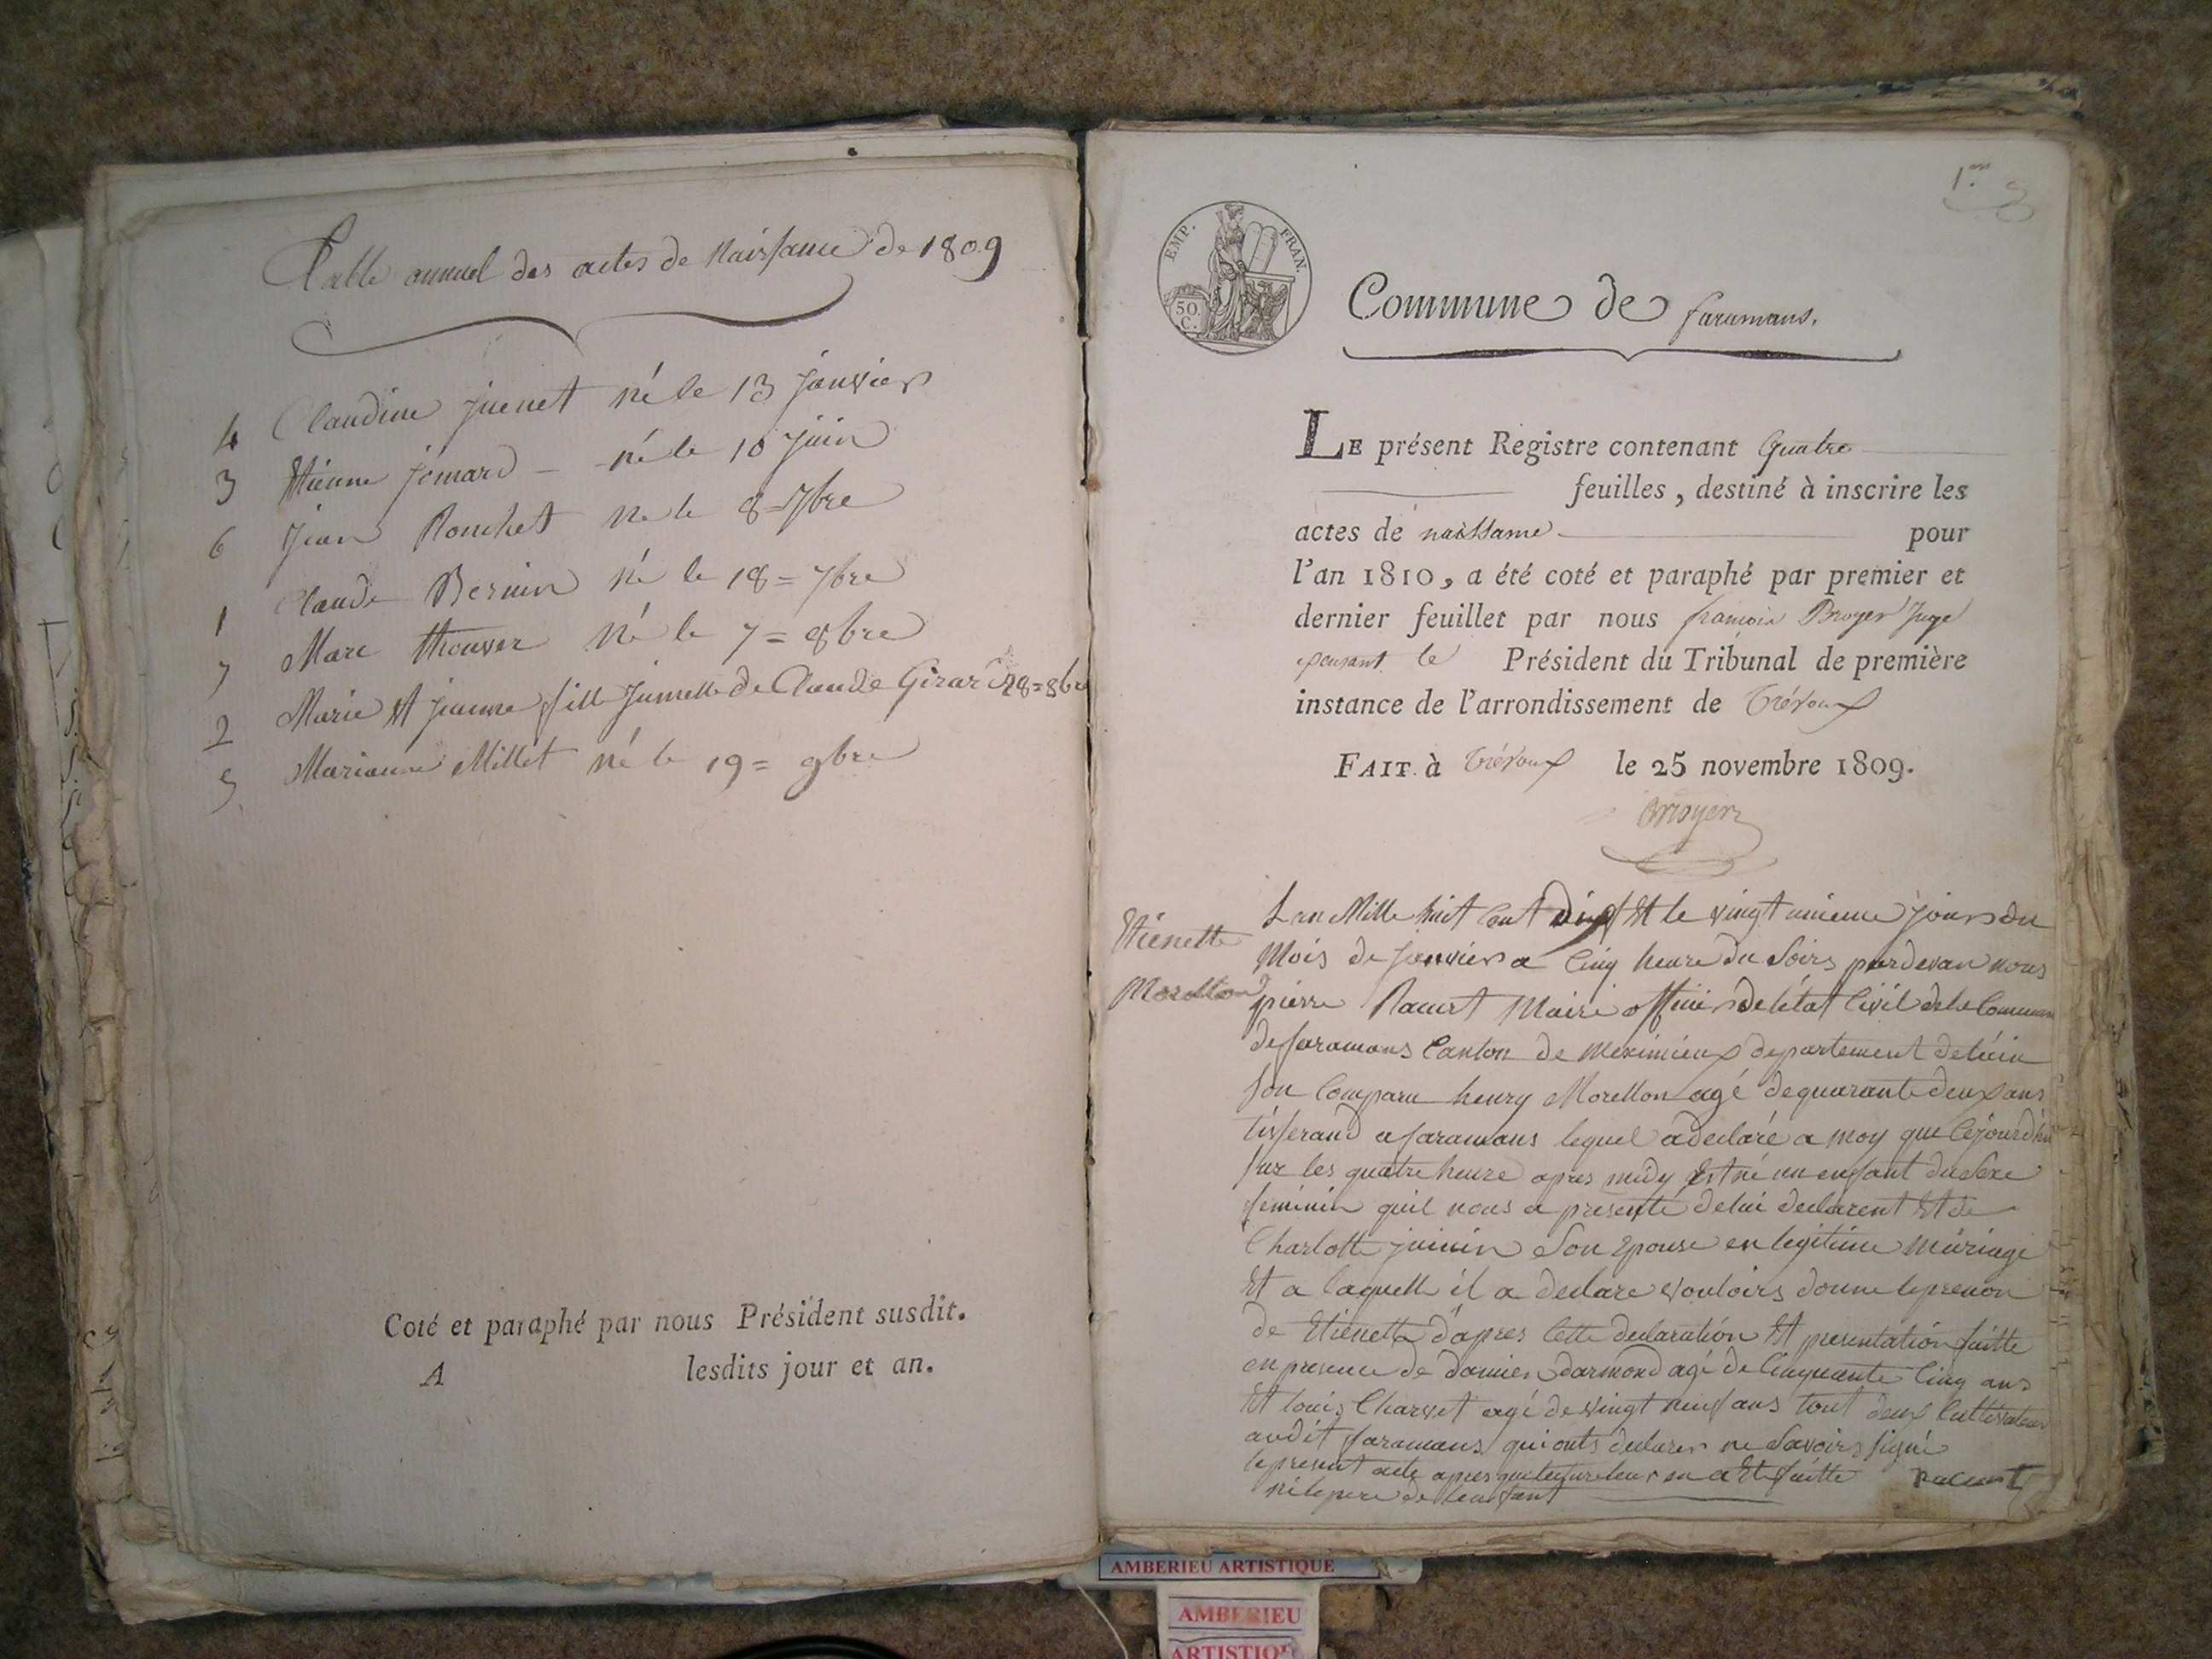 Table annuel des actes de Naissance de 1809
4 Claudine juenet né le 13 janvier
3 Etienne jémard - né le 10 juin
6 jean Ronchet né le 8 = 7bre
1 Claude Bernin né le 18 = 7bre
7 Marc né le 7 = 8bre
2 Marie Et jeanne fille jumelle de Claude Girard 28 = 8bre
5 Marianne Millet né le 19 = 9bre
Coté et paraphé par nous Président susdit.
A lesdits jour et an.
1er
EMP. FRAN.
50 C.
Commune de faramans.
LE présent Registre contenant Quatre
feuilles, destiné à inscrire les
actes de naissance pour
l'an 1810, a été coté et paraphé par premier et
dernier feuillet par nous françois Broyer Juge
le Président du Tribunal de première
instance de l'arrondissement de Trévoux
FAIT à Trévoux le 25 novembre 1809.
Broyer
Etienette
Morellon
Lan Mille huit Cent dix Et le vingt unieme jours du
Mois de janvier a Cinq heure du Soirs pardevan nous
pierre Racurt Maire officier de létat Civil de la Commune
de faramans Canton de meximieux departement de léin
Son Comparu henry Morellon agé de quarante deux ans
tisserand a faramans lequel a declaré a moy que Cejourdhui
sur les quatre heure apres midy Est né un enfant du Sexe
feminin quil nous a presenté de lui declarent Et de
Charlotte juenin Son Epouse en legitime mariage
Et a laquelle il a declare vouloirs donne le prenon
de Etienette dapres Cette declaration Et presentation faitte
en presence de damien darmond agé de Cinquante Cinq ans
Et louis Charvet agé de vingt neuf ans tout deux Cultivateur
audit faramans qui onts declarer ne Savoirs signé
le present acte apres que lecture leur en a Eté faitte Racurt
ni le pere de lenfant
AMBERIEU ARTISTIQUE
AMBERIEU
ARTISTIQUE